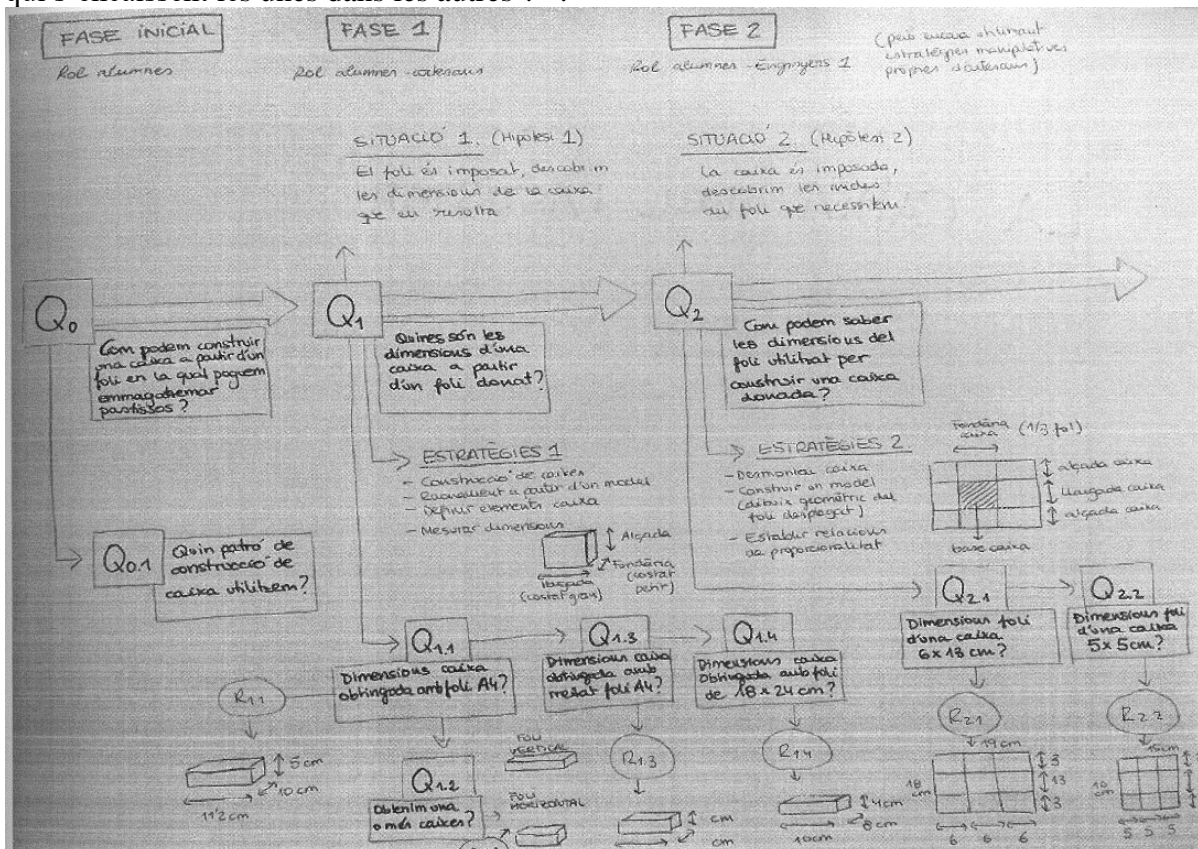 FASE INICIAL
Rol alumnes
FASE 1
Rol alumnes - artesans
FASE 2
Rol alumnes - Enginyers 1
(però encara utilitzant
estratègies manipulatives
pròpies d'artesans)
SITUACIÓ 1. (Hipòtesi 1)
El foli és imposat, descobrim
les dimensions de la caixa
que en resulta
SITUACIÓ 2 (Hipòtesi 2)
La caixa és imposada,
descobrim les mides
del foli que necessitem.
Q0
Com podem construir
una caixa a partir d'un
foli en la qual poguem
emmagatzemar
pastissos?
Q1
Quines són les
dimensions d'una
caixa a partir
d'un foli donat?
Q2
Com podem saber
les dimensions del
foli utilitzat per
construir una caixa
donada?
Q0.1
Quin patró de
construcció de
caixa utilitzem?
ESTRATÈGIES 1
- Construcció de caixes
- Raonament a partir d'un model
- Definir elements caixa
- Mesurar dimensions
Alçada
Fondària
(costat
petit)
llargada
(costat gran)
ESTRATÈGIES 2
- Desmuntar caixa
- Construir un model
(dibuix geomètric del
foli desplegat)
- Establir relacions
de proporcionalitat
Fondària
caixa
(1/3 foli)
alçada caixa
llargada caixa
alçada caixa
base caixa
Q1.1
Dimensions caixa
obtinguda amb foli A4?
Q1.3
Dimensions caixa
obtinguda amb
meitat foli A4?
Q1.4
Dimensions caixa
obtinguda amb foli
de 18 x 24 cm?
Q2.1
Dimensions foli
d'una caixa
6 x 13 cm?
Q2.2
Dimensions foli
d'una caixa
5 x 5 cm?
R1.1
5 cm
10 cm
11'2 cm
Q1.2
Obtenim una
o més caixes?
FOLI
VERTICAL
FOLI
HORIZONTAL
R1.3
cm
cm
R1.4
4 cm
8 cm
10 cm
R2.1
19 cm
18
cm
3
13
3
6 6 6
R2.2
15 cm
10
cm
5 5 5